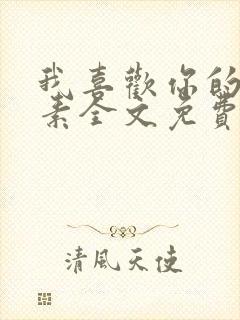 我喜歡你的
素全文免費
清風天使